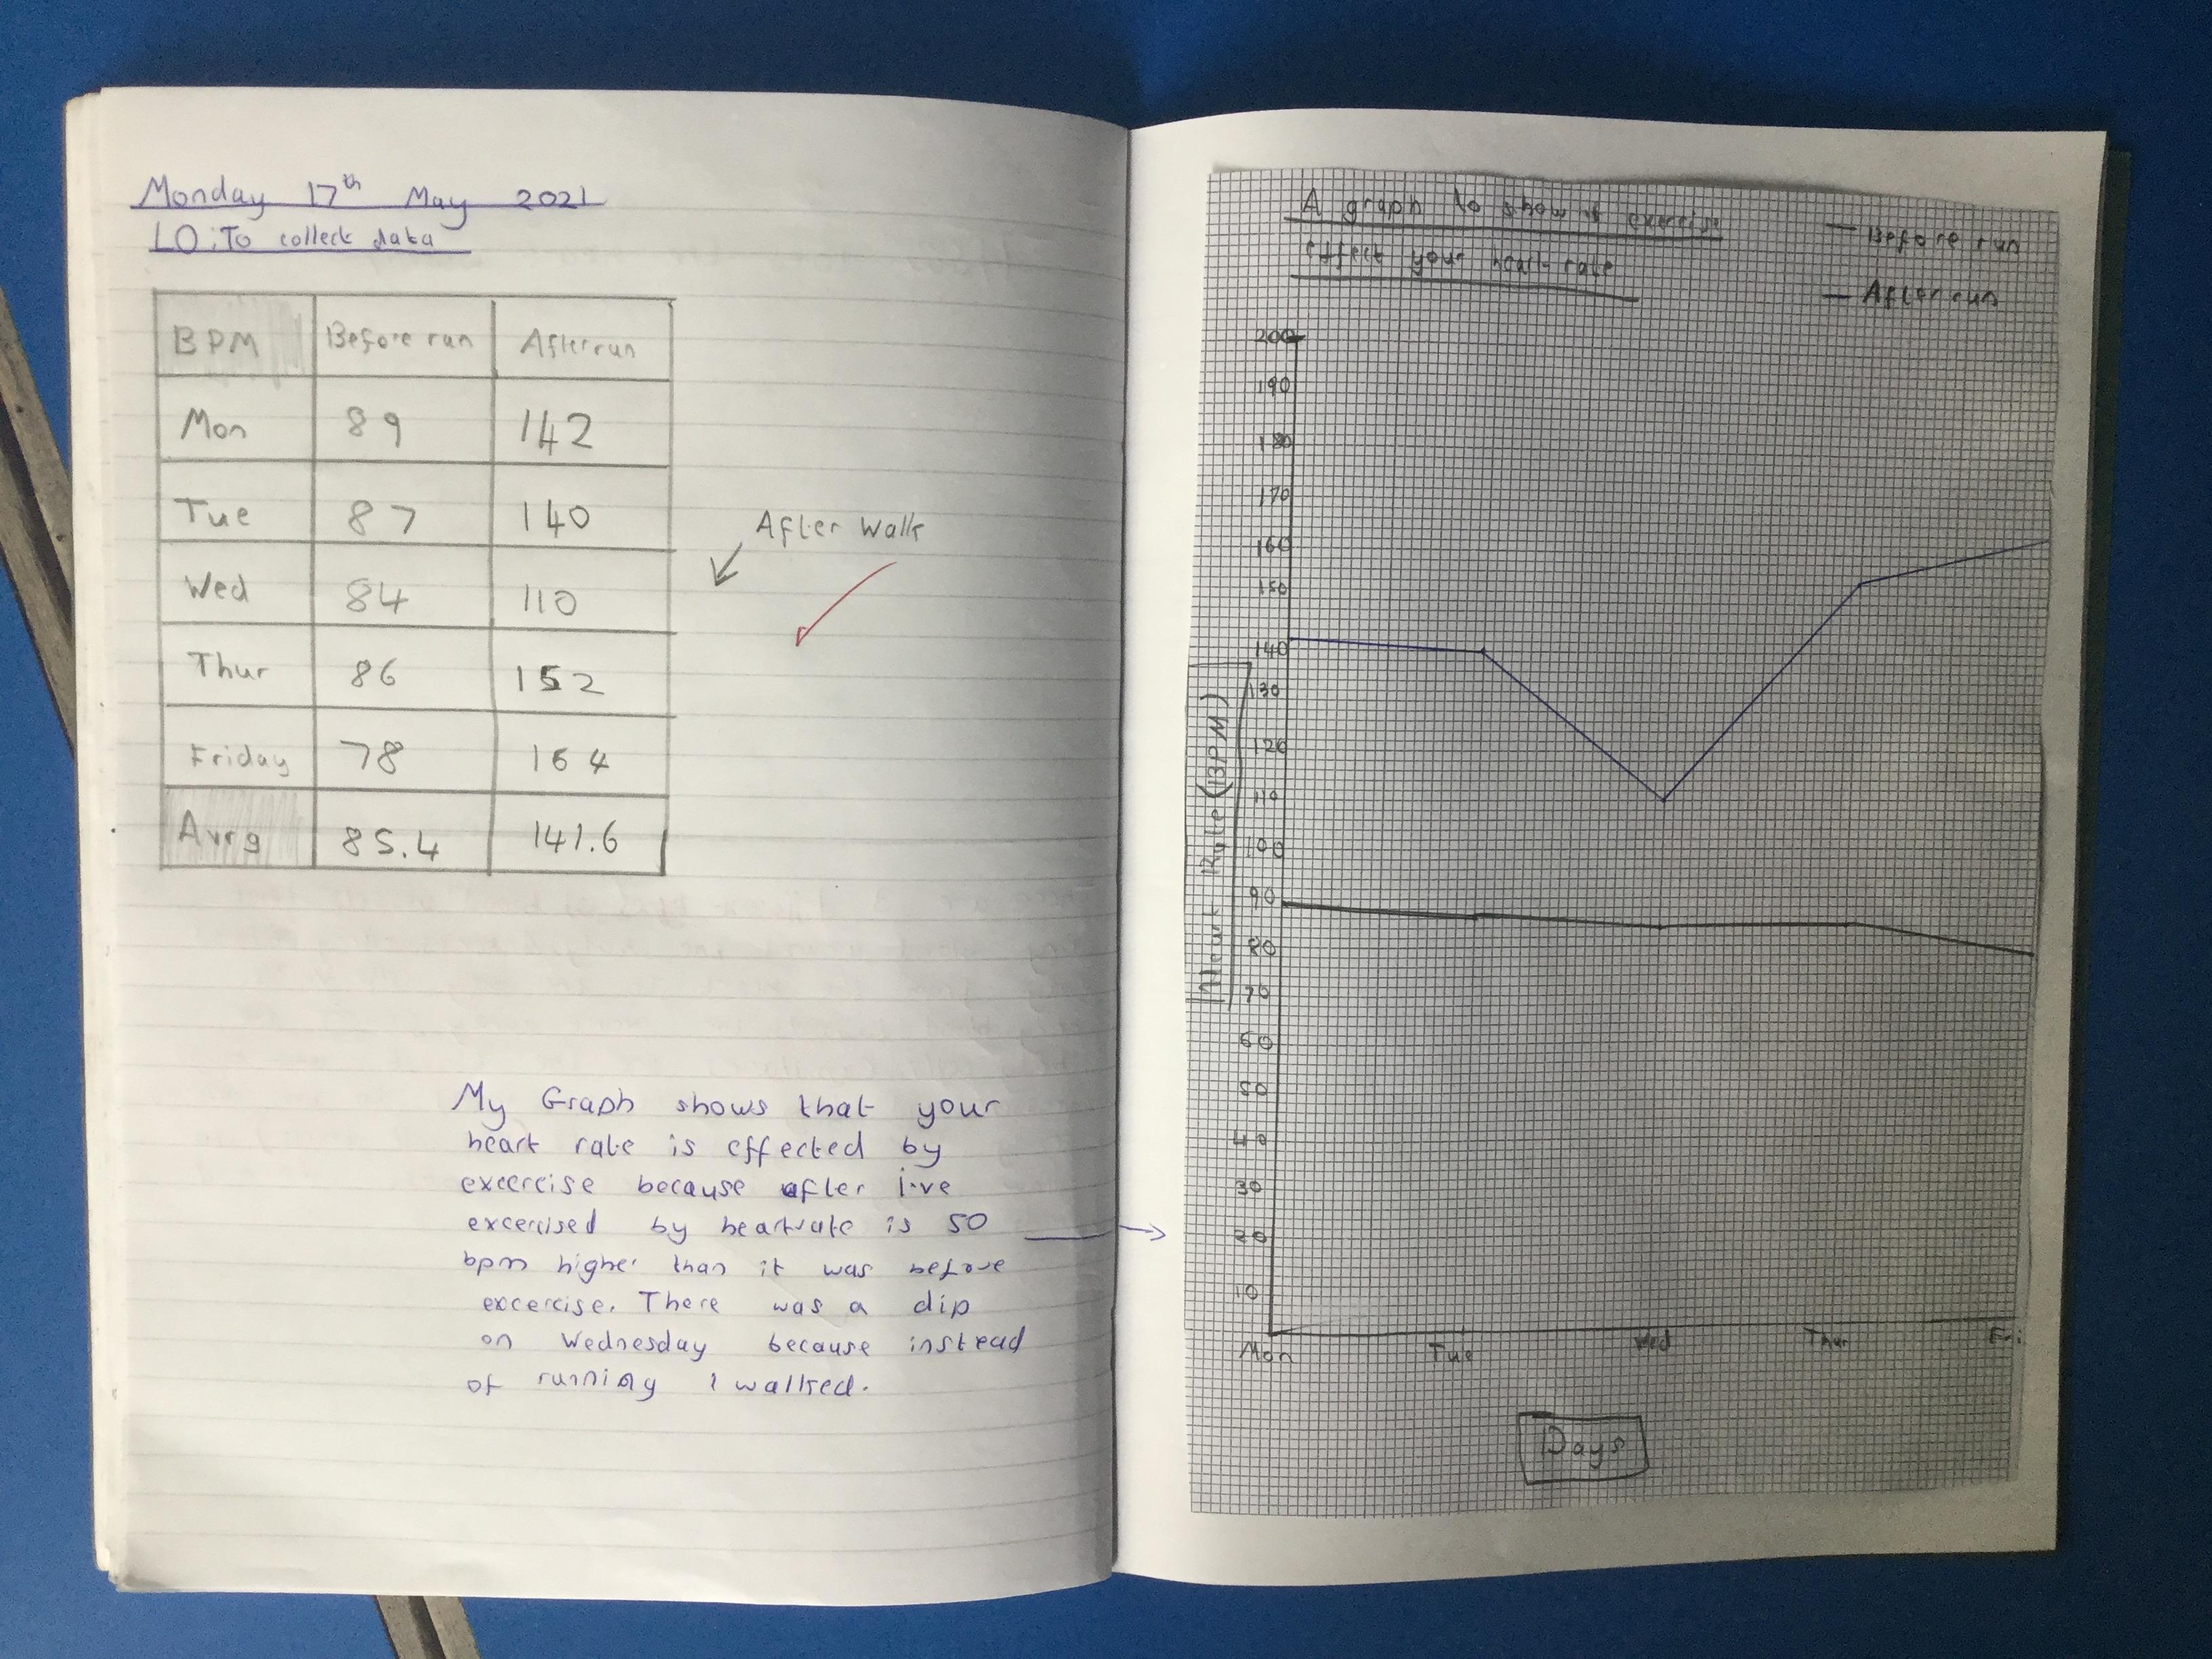 Monday 17th May 2021
LO: To collect data
BPM Before run After run
Mon 89 142
Tue 87 140
After walk
Wed 84 110
Thur 86 152
Friday 78 164
Avrg 85.4 141.6
My Graph shows that your
heart rate is effected by
excercise because after i've
excercised by heartrate is 50
bpm higher than it was before
excercise. There was a dip
on Wednesday because instead
of running i walked.
A graph to show if exercise
effect your heart rate
Before run
After run
200
190
180
170
160
150
140
130
120
110
100
90
80
70
60
50
40
30
20
10
Heart Rate (BPM)
Mon Tue Wed Thur Fri
Days